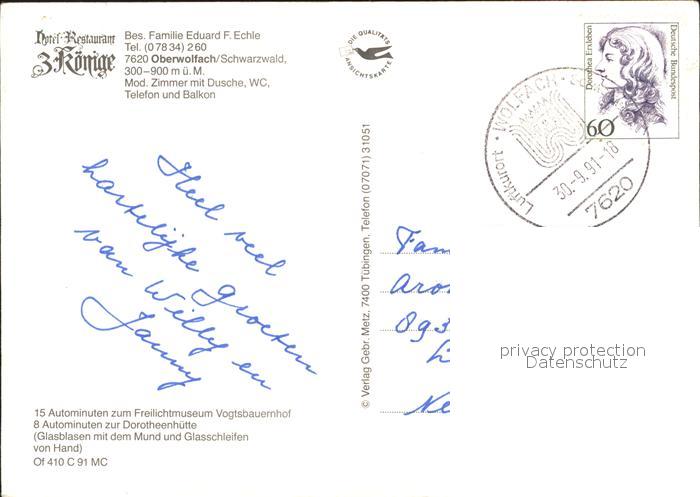 Hotel-Restaurant
3 Könige
Bes. Familie Eduard F. Echle
Tel. (0 78 34) 2 60
7620 Oberwolfach/Schwarzwald,
300–900 m ü. M.
Mod. Zimmer mit Dusche, WC,
Telefon und Balkon
DIE QUALITÄTS
ANSICHTSKARTE
Dorothea Erxleben
Deutsche Bundespost
60
Luftkurort · WOLFACH ·
30.-9.91-18
7620
Heel veel
hartelijke groeten
van Willy en
Janny
© Verlag Gebr. Metz, 7400 Tübingen, Telefon (07071) 31051
Fam
Aro
893
Ne
privacy protection
Datenschutz
15 Autominuten zum Freilichtmuseum Vogtsbauernhof
8 Autominuten zur Dorotheenhütte
(Glasblasen mit dem Mund und Glasschleifen
von Hand)
Of 410 C 91 MC